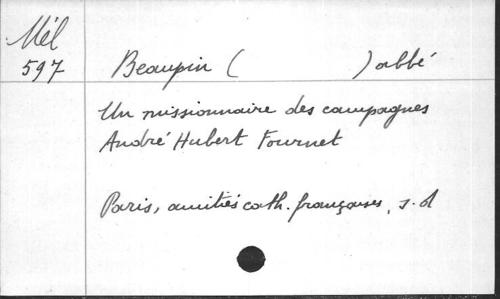 Mél
597
Beaupin ( ) abbé
Un missionnaire des campagnes
André Hubert Fournet
Paris, amitiés cath. françaises, s. d